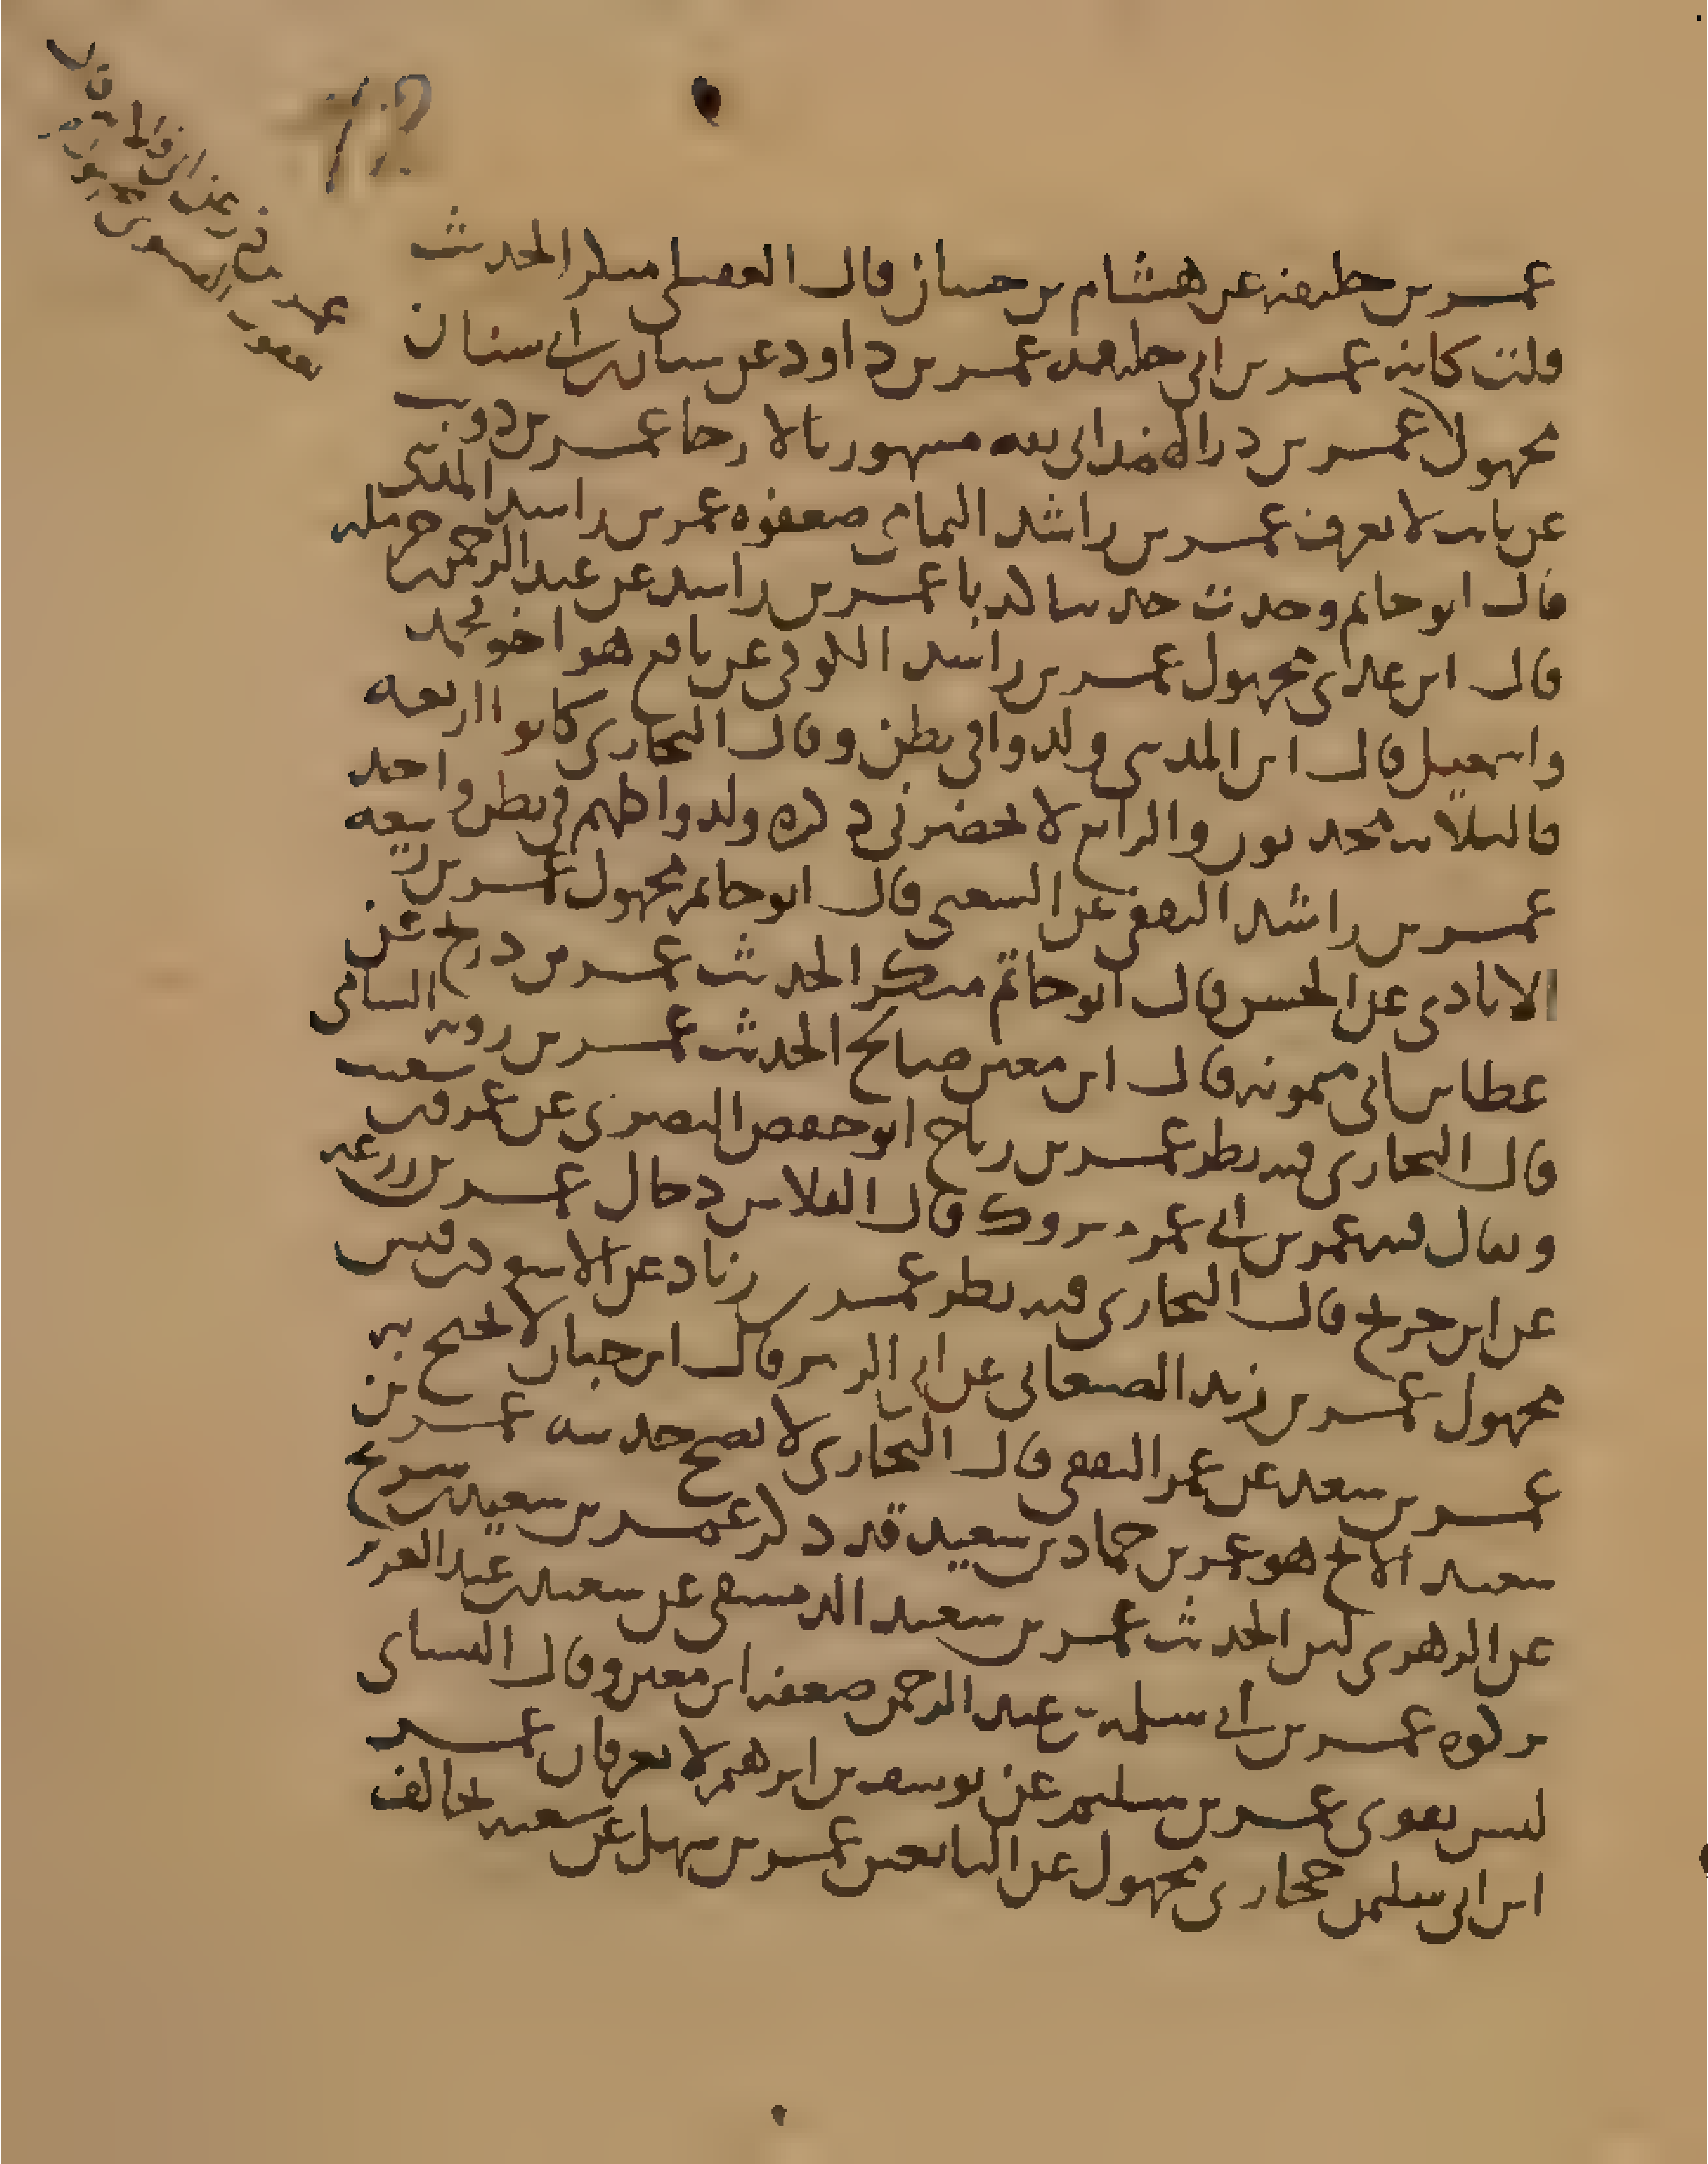 عمر بن خليفة عن هشام بن حسان قال العقيلي منكر الحديث
قلت كانه عمر بن ابي خليفة عمر بن داود عن سنان بن ابي سنان
مجهول عمر بن ذر الهمداني ثقة مشهور بالارجا عمر بن دويب
عن ثابت لا يعرف عمر بن راشد اليمامي ضعفوه عمر بن راشد المدني
قال ابو حاتم وجدت حديثا كذبا عمر بن راشد عن عبد الرحمن بن حرملة
قال ابن عدي مجهول عمر بن راشد الكوفي عن نافع هو اخو محمد
واسمعيل قال ابن المديني ولدوا في بطن وقال البخاري كانوا اربعة
فالثلاثة محدثون والرابع لا يحضرني ذكره ولدوا كلهم في بطن واحد
عمر بن راشد الثقفي عن الشعبي قال ابو حاتم مجهول عمر بن ربيعة
الايادي عن الحسن قال ابو حاتم منكر الحديث عمر بن درع عن
عطا بن ابي ميمونة قال ابن معين صالح الحديث عمر بن روبة الشامي
قال البخاري فيه نظر عمر بن رياح ابو حفص البصري عن عمرو بن شعيب
ويقال فيه عمر بن ابي عمر متروك قال الفلاس دجال عمر بن زرعة
عن ابن جريج قال البخاري فيه نظر عمر بن زياد عن الاسود بن قيس
مجهول عمر بن زيد الصنعاني عن ابي الزبير قال ابن حبان لا يحتج به
عمر بن سعد عن عمر الثقفي قال البخاري لا يصح حديثه عمر بن
سعيد الابح هو عمر بن حماد بن سعيد قد ذكر عمر بن سعيد بن سريج
عن الزهري لين الحديث عمر بن سعيد الدمشقي عن سعيد بن عبد العزيز
تركوه عمر بن ابي سلمة بن عبد الرحمن ضعفه ابن معين وقال النسائي
ليس بقوي عمر بن سليم عن يوسف بن ابرهيم لا يعرفان عمر
ابن ابي سليمن حجازي مجهول عن التابعين عمر بن سهل عن شعبة يخالف